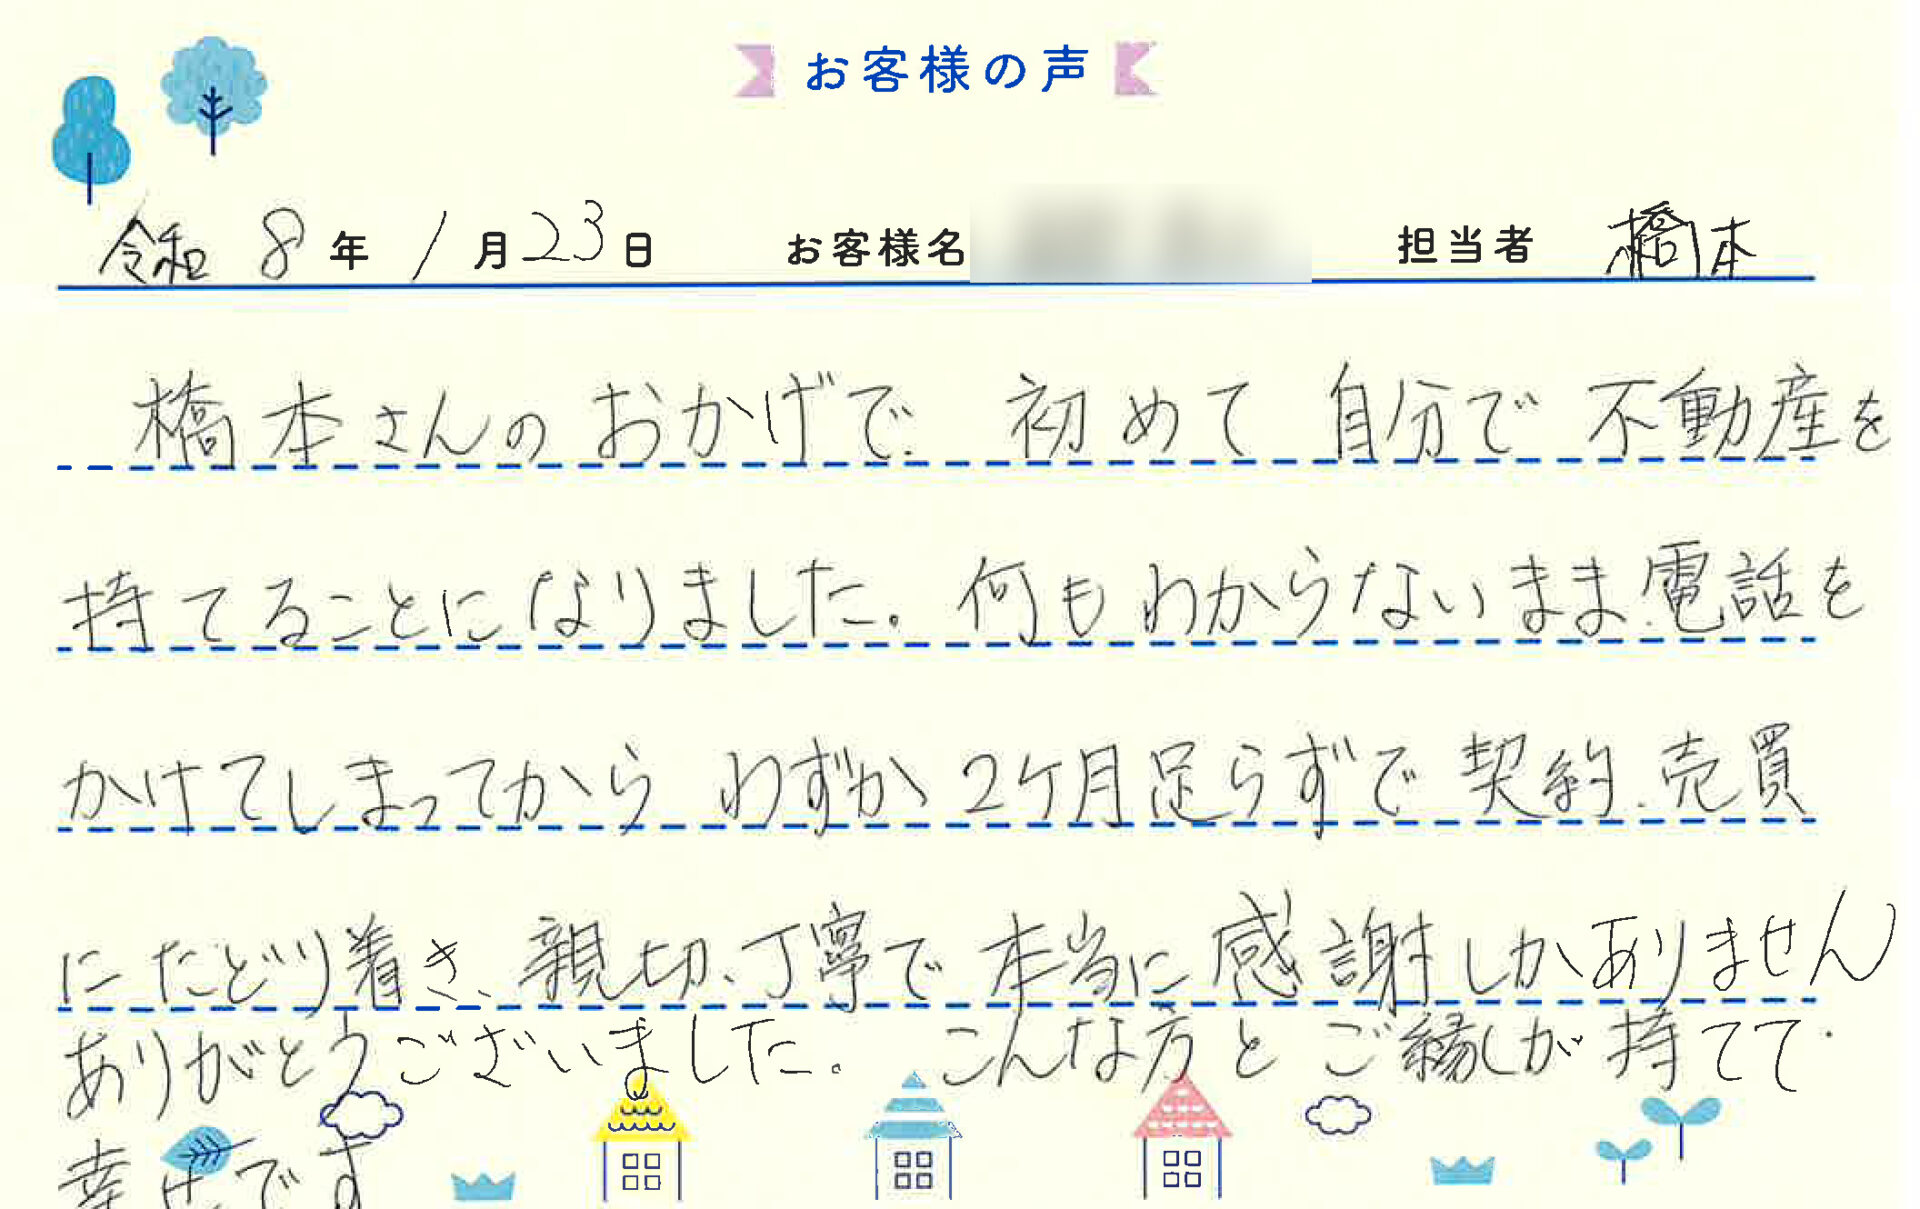 お客様の声
令和 8年 1月23日 お客様名 担当者 橋本
橋本さんのおかげで、初めて自分で不動産を
持てることになりました。何もわからないまま、電話を
かけてしまってから わずか 2ケ月足らずで契約、売買
にたどり着き、親切、丁寧で本当に感謝しかありません
ありがとうございました。こんな方とご縁が持てて
幸せです